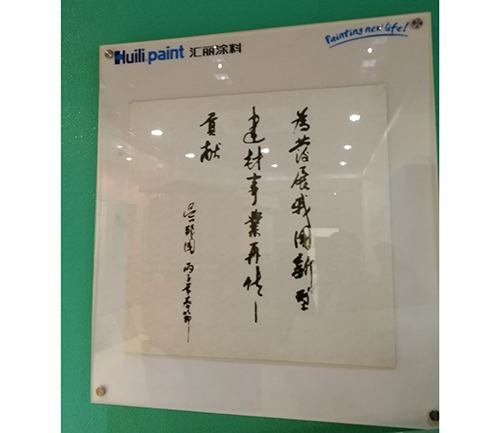 Huili paint 汇丽涂料
Painting new life!
為发展我国新型
建材事業再作
貢献
吴邦国